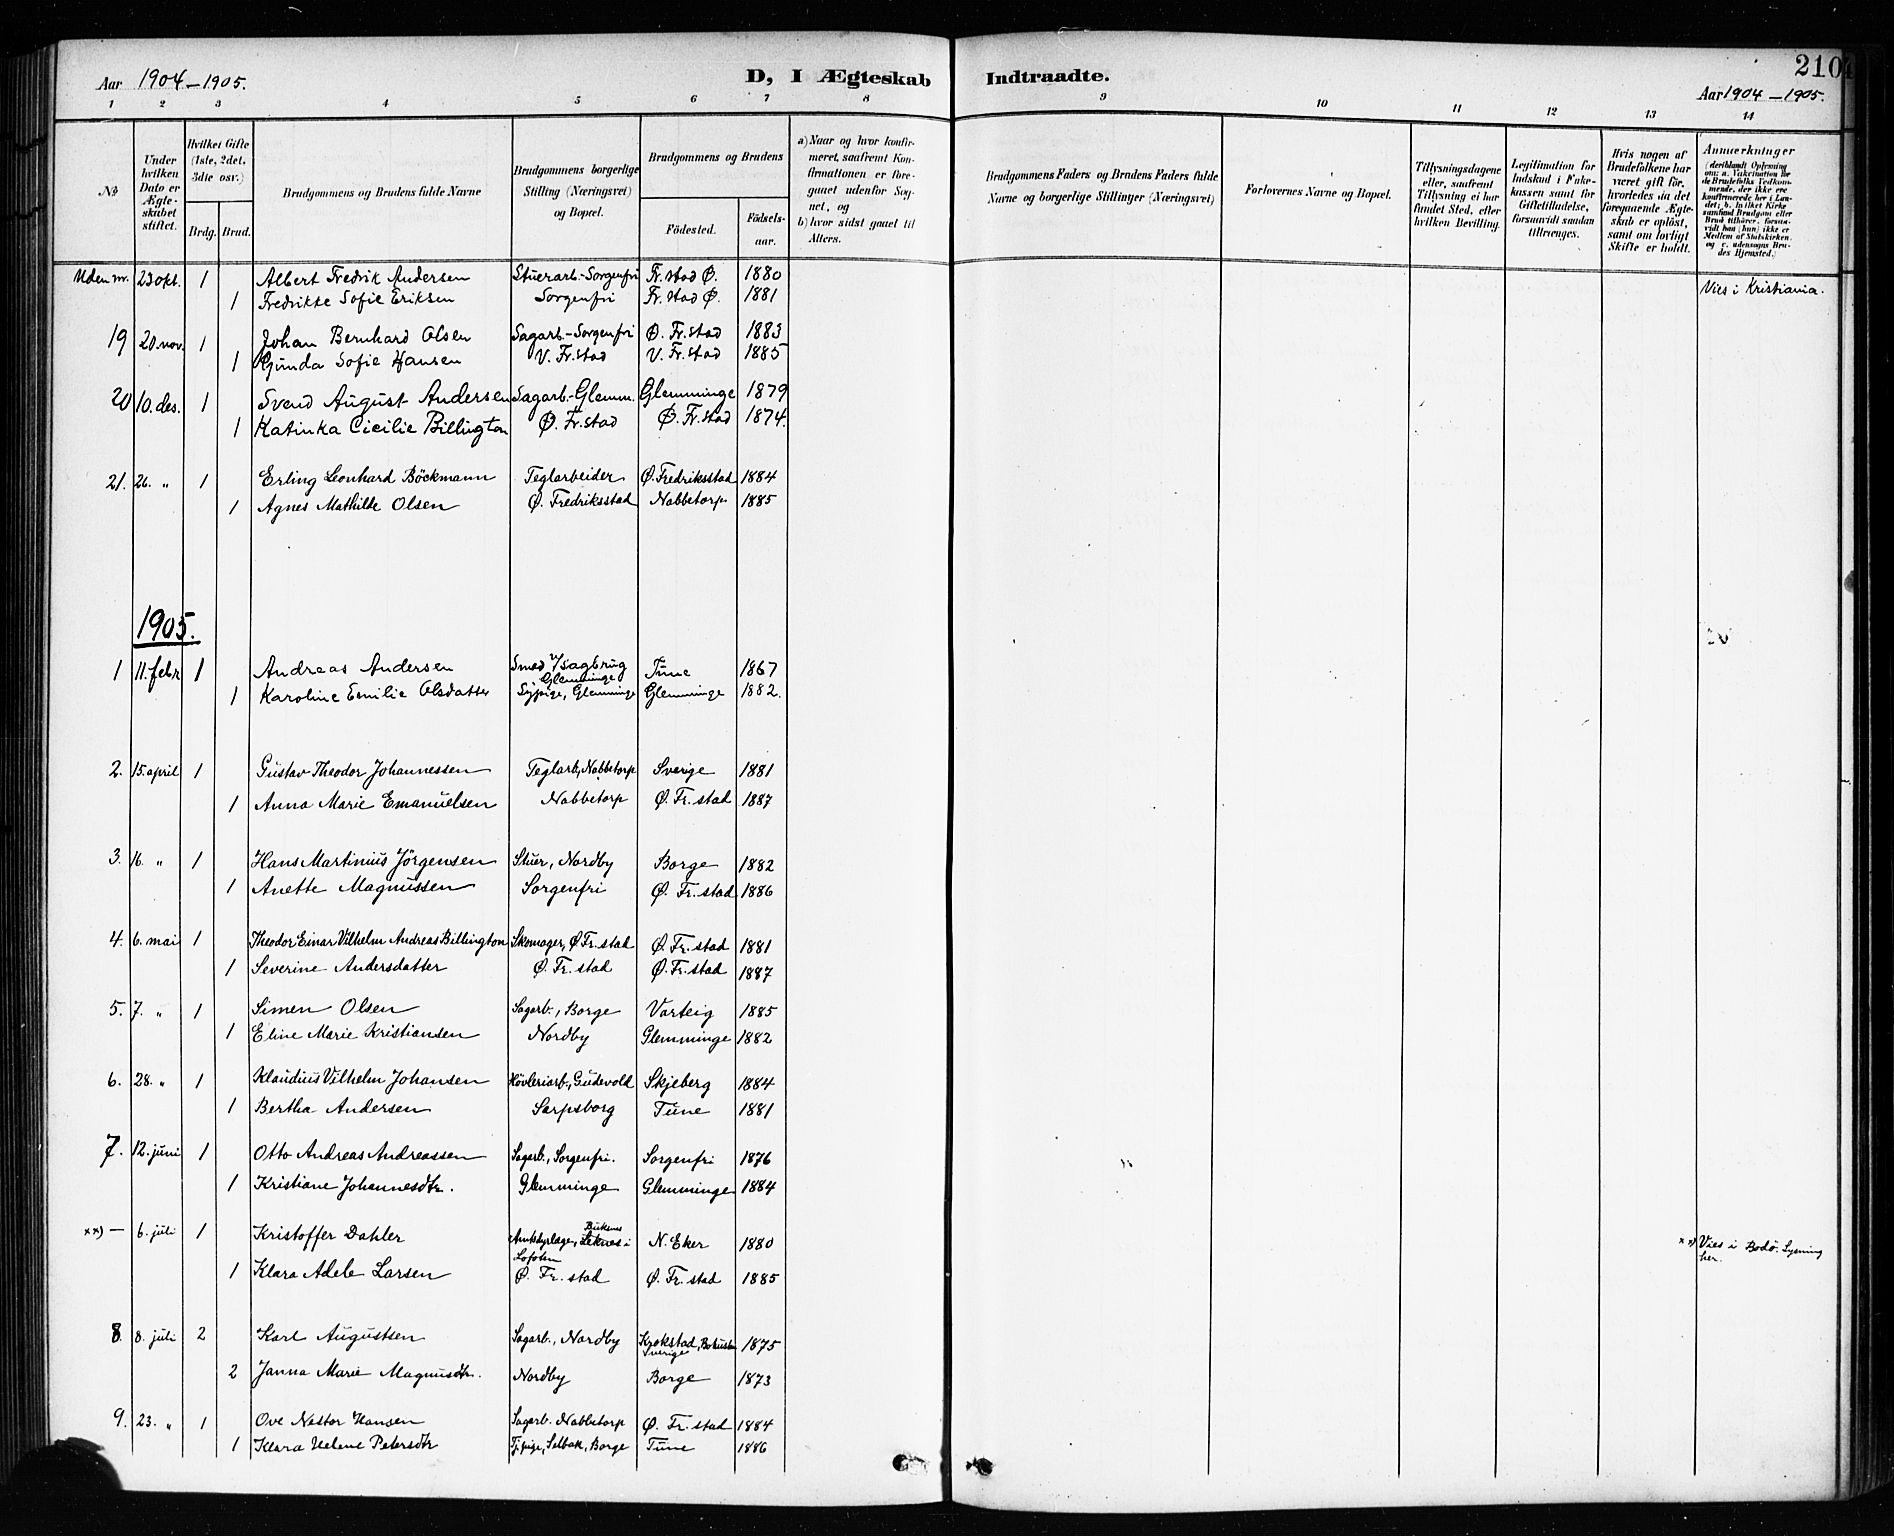 Aar 1904–1905.
D, I Ægteskab Indtraadte.
210
Aar 1904–1905.
1 2 3 4 5 6 7 8 9 10 11 12 13 14
No
Under hvilken Dato er Ægteskabet stiftet.
Hvilket Gifte (1ste, 2det, 3die osv.)
Brdg. Brud.
Brudgommens og Brudens fulde Navne
Brudgommens borgerlige Stilling (Næringsvei) og Bopæl.
Brudgommens og Brudens
Fødested.
Fødselsaar.
a) Naar og hvor konfirmeret, saafremt Konfirmationen er foregaaet udenfor Sognet, og
b) hvor sidst gaaet til Alters.
Brudgommens Faders og Brudens Faders fulde Navne og borgerlige Stillinger (Næringsvei)
Forlovernes Navne og Bopæl.
Tillysningsdagene eller, saafremt Tillysning ei har fundet Sted, efter hvilken Bevilling.
Legitimation for Indskud i Enkekassen samt for Giftetilladelse, forsaavidt saadan tiltrænges.
Hvis nogen af Brudefolkene har været gift før, hvorledes da det foregaaende Ægteskab er opløst, samt om lovligt Skifte er holdt.
Anmærkninger (deriblandt Oplysning om: a. Vakcination for de Brudefolks Vedkommende, der ikke ere konfirmerede her i Landet; b. hvilket Kirkesamfund Brudgom eller Brud tilhører, forsaavidt han (hun) ikke er Medlem af Statskirken, og c. udensogns Brudes Hjemsted.)
Uden nr. 23 okt. 1 Albert Fredrik Andersen Stuerarb.–Sorgenfri Fr. stad Ø. 1880
1 Fredrikke Sofie Eriksen Sorgenfri Fr. stad Ø. 1881 Vies i Kristiania.
19 20. nov. 1 Johan Bernhard Olsen Sagarb.–Sorgenfri Ø. Fr. stad 1883
1 Gunda Sofie Hansen V. Fr. stad V. Fr. stad 1885
20 10. des. 1 Svend August Andersen Sagarb.–Glemm. Glemminge 1879
1 Katinka Cicilie Billington Ø. Fr. stad Ø. Fr. stad 1874.
21. 26. „ 1 Erling Leonhard Böckmann Teglarbeider Ø. Fredriksstad 1884
1 Agnes Mathilde Olsen Ø. Fredriksstad Nabbetorp 1885
1905.
1 11. febr 1 Andreas Andersen Smed v/sagbrug Glemminge Tune 1867
1 Karoline Emilie Olsdatter Sypige, Glemminge Glemminge 1882.
2. 15. april 1 Gustav Theodor Johannessen Teglarb., Nabbetorp Sverige 1881
1 Anna Marie Emanuelsen Nabbetorp Ø. Fr. stad 1887
3. 16. „ 1 Hans Martinius Jörgensen Stuer, Nordby Borge 1882
1 Anette Magnussen Sorgenfri Ø. Fr. stad 1886
4. 6. mai 1 Theodor Einar Vilhelm Andreas Billington Skomager, Ø. Fr. stad Ø. Fr. stad 1881
1 Severine Andersdatter Ø. Fr. stad Ø. Fr. stad 1887
5. 7. „ 1 Simen Olsen Sagarb., Borge Varteig 1885
1 Eline Marie Kristiansen Nordby Glemminge 1882
6. 28. „ 1 Klaudius Vilhelm Johansen Hövleriarb., Gudevold Skjeberg 1884
1 Bertha Andersen Sarpsborg Tune 1881
7. 12. juni 1 Otto Andreas Andreassen Sagarb., Sorgenfri. Sorgenfri 1876
1 Kristiane Johannesdtr. Glemminge Glemminge 1884
xx) — 6. juli 1 Kristoffer Dahler Amtsdyrlæge, Buksnes i Lofoten N. Eker 1880 xx) Vies i Bodö. Lysning her.
1 Klara Adele Larsen Ø. Fr. stad Ø. Fr. stad 1885
8. 8. juli 2 Karl Augustsen Sagarb., Nordby Krokstad, Bohuslen Sverige 1875
2 Janna Marie Magnusdtr. Nordby Borge 1873
9. 23. „ 1 Ove Nestor Hansen Sagarb. Nabbetorp Ø. Fr. stad 1884
1 Klara Helene Petersdtr Tj.pige, Selbak, Borge Tune 1886